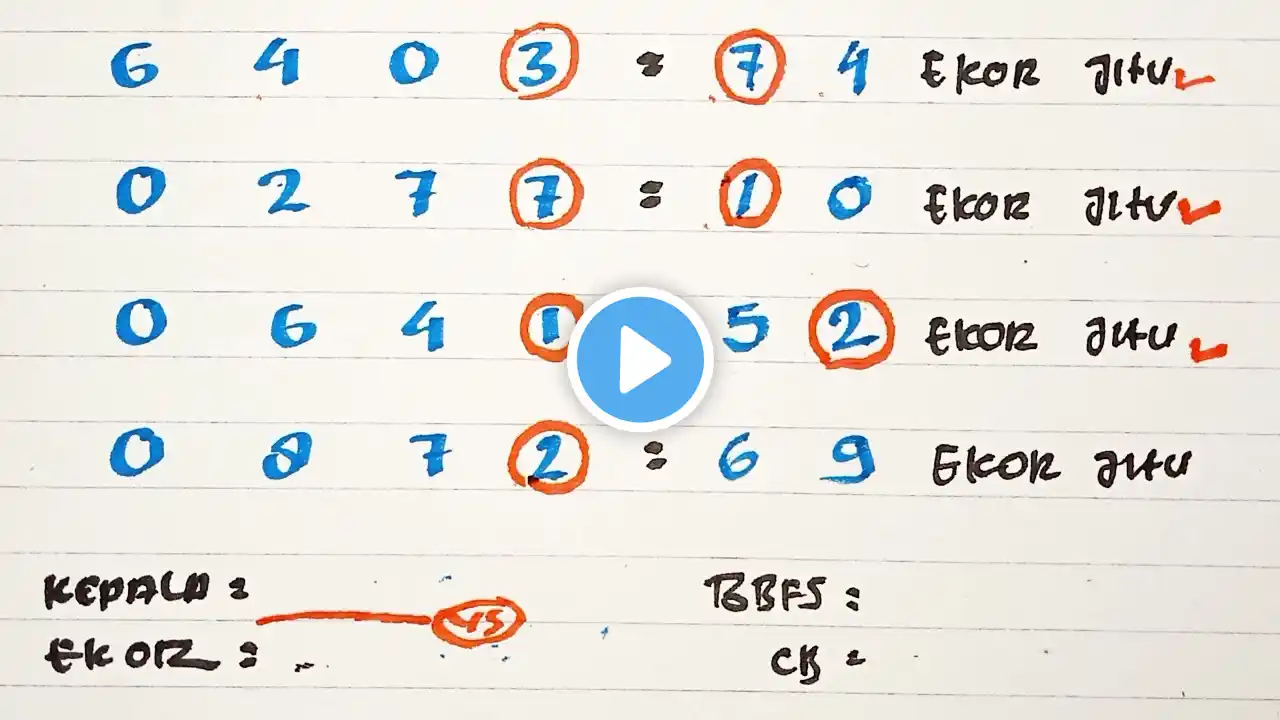 6 4 0 3 = 7 4 EKOR JITU ✓
0 2 7 7 : 1 0 EKOR JITU ✓
0 6 4 1 5 2 EKOR JITU ✓
0 8 7 2 : 6 9 EKOR JITU
KEPALA : BBFS :
VS
EKOR : CB :